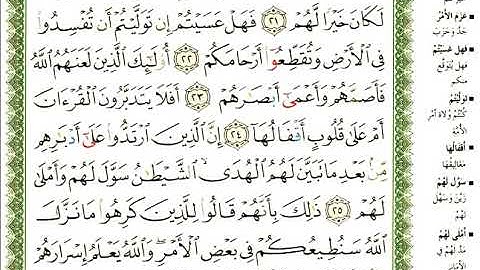 لَكَانَ خَيْرًا لَّهُمْ ٢١ فَهَلْ عَسَيْتُمْ إِن تَوَلَّيْتُمْ أَن تُفْسِدُوا۟
فِى ٱلْأَرْضِ وَتُقَطِّعُوٓا۟ أَرْحَامَكُمْ ٢٢ أُو۟لَٰٓئِكَ ٱلَّذِينَ لَعَنَهُمُ ٱللَّهُ
فَأَصَمَّهُمْ وَأَعْمَىٰٓ أَبْصَٰرَهُمْ ٢٣ أَفَلَا يَتَدَبَّرُونَ ٱلْقُرْءَانَ
أَمْ عَلَىٰ قُلُوبٍ أَقْفَالُهَآ ٢٤ إِنَّ ٱلَّذِينَ ٱرْتَدُّوا۟ عَلَىٰٓ أَدْبَٰرِهِم
مِّنۢ بَعْدِ مَا تَبَيَّنَ لَهُمُ ٱلْهُدَى ۙ ٱلشَّيْطَٰنُ سَوَّلَ لَهُمْ وَأَمْلَىٰ
لَهُمْ ٢٥ ذَٰلِكَ بِأَنَّهُمْ قَالُوا۟ لِلَّذِينَ كَرِهُوا۟ مَا نَزَّلَ
ٱللَّهُ سَنُطِيعُكُمْ فِى بَعْضِ ٱلْأَمْرِ ۖ وَٱللَّهُ يَعْلَمُ إِسْرَارَهُمْ
عَزَمَ الأَمْرُ
فهل عَسَيْتُمْ
فهل يُتَوَقَّعُ
منكم
تَوَلَّيْتُمْ
كُنْتُمْ وُلَاةَ أمْرِ
الأُمَّةِ
أَقْفَالُهَا
مَغَالِيقُهَا
سَوَّلَ لَهُمْ
زَيَّنَ وَسَهَّلَ
لَهُمْ
أَمْلَى لَهُمْ
مَدَّ لَهُمْ فِي